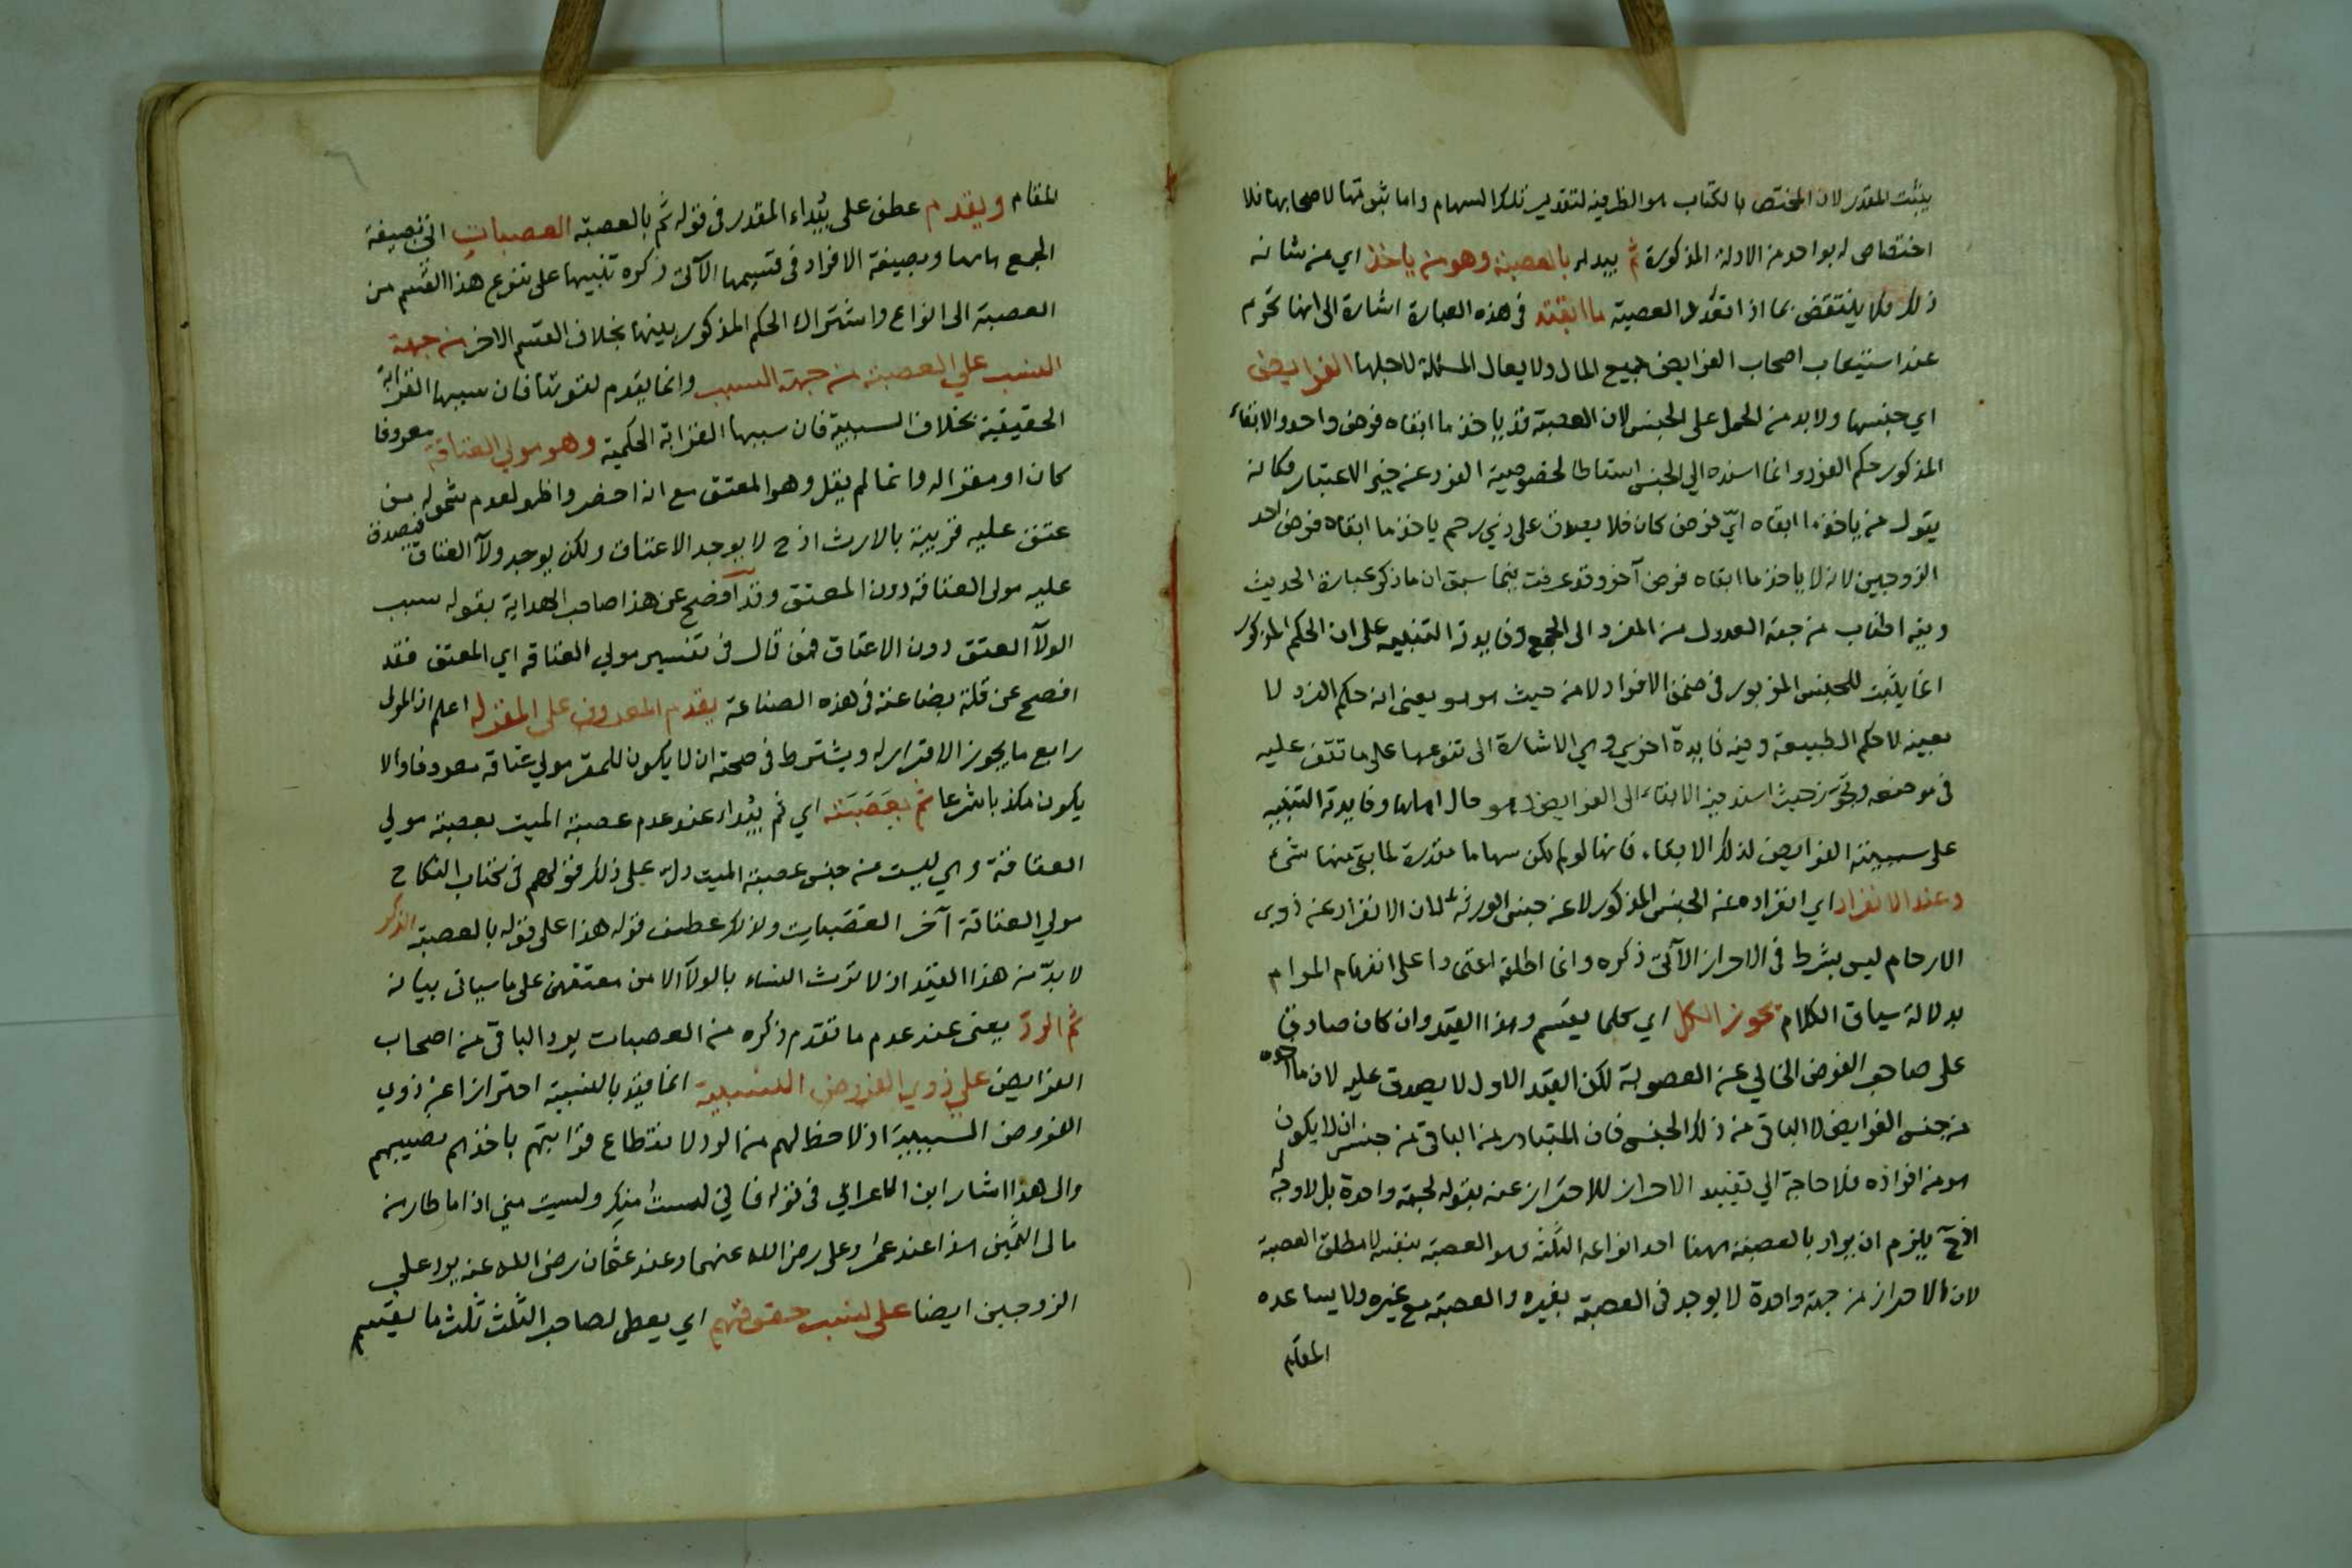 يثبت المقدر لان المختص بالكتاب هو الظرفية لتقدير تلك السهام واما ثبوتها لاصحابها فلا
اختصاص له بواحد من الادلة المذكورة ثم يبدا بالعصبة وهو من ياخذ اي من شانه
ذلك فلا ينتقض بما اذا تعدد العصبة ما ابقته في هذه العبارة اشارة الى انها تحرم
عند استيعاب اصحاب الفرايض جميع المال ولا يعال المسئلة لاجلها الفرايض
اي جنسها ولا بد من الحمل على الجنس لان العصبة قد ياخذ ما ابقاه فرض واحد والابقاء
المذكور حكم الفرد وانما اسنده الي الجنس اسقاطا لخصوصية الفرد عن حيز الاعتبار فكانه
يقول من ياخذ ما ابقاه ايّ فرض كان فلا يصدق على ذي رحم ياخذ ما ابقاه فرض احد
الزوجين لانه لا ياخذ ما ابقاه فرض آخر وقد عرفت فيما سبق ان ما ذكر عبارة الحديث
وفيه اطناب من جهة العدول من المفرد الى الجمع وفايدته التنبيه على ان الحكم المذكور
انما يثبت للجنس المزبور في ضمن الافراد لا من حيث هو هو يعني انه حكم الفرد لا
بعينه لا حكم الطبيعة وفيه فايدة اخري وهي الاشارة الى تنوعها على ما تقف عليه
في موضعه وتجوّز حيث اسند فيه الابقاء الى الفرايض وهو حال اهلها وفايدته التنبيه
على سببية الفرايض لذلك الابقاء فانها لو لم يكن سهاما مقدرة لما بقي منها شيء
وعند الانفراد اي انفراده عن الجنس المذكور لا عن جنس الورثة لان الانفراد عن ذوي
الارحام ليس بشرط في الاحراز الآتى ذكره وانما اطلقه اعتمادا على انفهام المرام
بدلالة سياق الكلام يحوز الكل اي كلما يقسم وهذا القيد وان كان صادقا
على صاحب الفرض الخالي عن العصوبة لكن القيد الاول لا يصدق عليه لان ما اخذه
من جنس الفرايض لا الباقي من ذلك الجنس فان المتبادر من الباقي من جنس ان لا يكون
هو من افراده فلا حاجة الي تقييد الاحراز للاحتراز عنه بقوله لجهة واحدة بل لا وجه له
اذ ح يلزم ان يراد بالعصبة ههنا احد انواعه الثلثة وهو العصبة بنفسه لا مطلق العصبة
لان الاحراز من جهة واحدة لا يوجد في العصبة بغيره والعصبة مع غيره ولا يساعده
المقام
المقام ويقدم عطف على يُبداء المقدر في قوله ثم بالعصبة العصبات اتى بصيغة
الجمع هاهنا وبصيغة الافراد في قسيمها الآتى ذكره تنبيها على تنوع هذا القسم من
العصبة الى انواع واشتراك الحكم المذكور بينها بخلاف القسم الاخر من جهة
النسب علي العصبة من جهة السبب وانما يقدم لقوتها فان سببها القرابة
الحقيقية بخلاف السببية فان سببها القرابة الحكمية وهو مولي العتاقة معروفا
كان او مقرا له وانما لم يقل وهو المعتق مع انه اخصر واظهر لعدم شموله من
عتق عليه قريبه بالارث اذ ح لا يوجد الاعتاق ولكن يوجد ولآ العتاق فيصدق
عليه مولى العتاقة دون المعتق وقد افصح عن هذا صاحب الهداية بقوله سبب
الولآ العتق دون الاعتاق فمن قال في تفسير مولي العتاقه اي المعتق فقد
افصح عن قلة بضاعته في هذه الصناعة يقدم المعروف على المقر له اعلم ان المولى
رابع ما يجوز الاقرار به ويشترط في صحته ان لا يكون للمقر مولي عتاقه معروفا والا
يكون مكذبا شرعا ثم بعَصَبَته اي ثم يبُداء عند عدم عصبة الميت بعصبة مولي
العتاقة وهي ليست من جنس عصبة الميت دلّ على ذلك قولهم في كتاب النكاح
مولي العتاقة آخر العصبات ولذلك عطف قوله هذا على قوله بالعصبة الذكر
لا بدّ من هذا القيد اذ لا ترث النساء بالولآ الا من معتقهن على ما سياتى بيانه
ثم الردّ يعنى عند عدم ما تقدم ذكره من العصبات يرد الباقي من اصحاب
الفرايض علي ذوي الفروض النسبية انما قيد بالنسبية احترازا عن ذوي
الفروض السببية اذ لا حظ لهم من الرد لانقطاع قرابتهم باخذهم نصيبهم
والى هذا اشار ابن الاعرابي في قوله فاني لست منك ولست مني اذا ما طار من
مالى الثمين هذا عند عمر وعلى رضى الله عنهما وعند عثمان رضى الله عنه يرد علي
الزوجين ايضا على نسب حقوقهم اي يعطى لصاحب الثلث ثلث ما يقسم